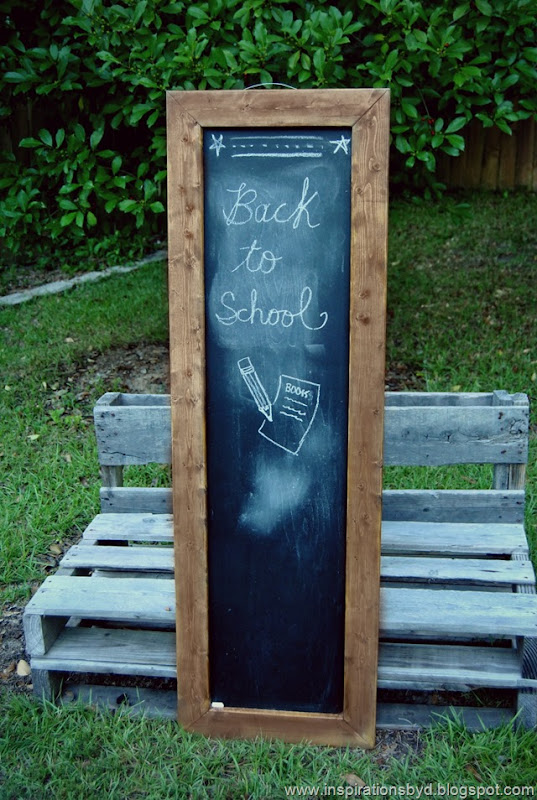 Back
to
School
BOOK
www.inspirationsbyd.blogspot.com